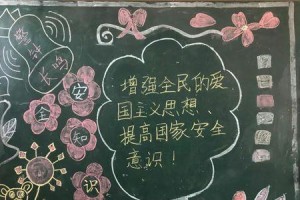 警钟
长鸣
安
全
知
识
增强全民的爱
国主义思想、
提高国家安全
意识！